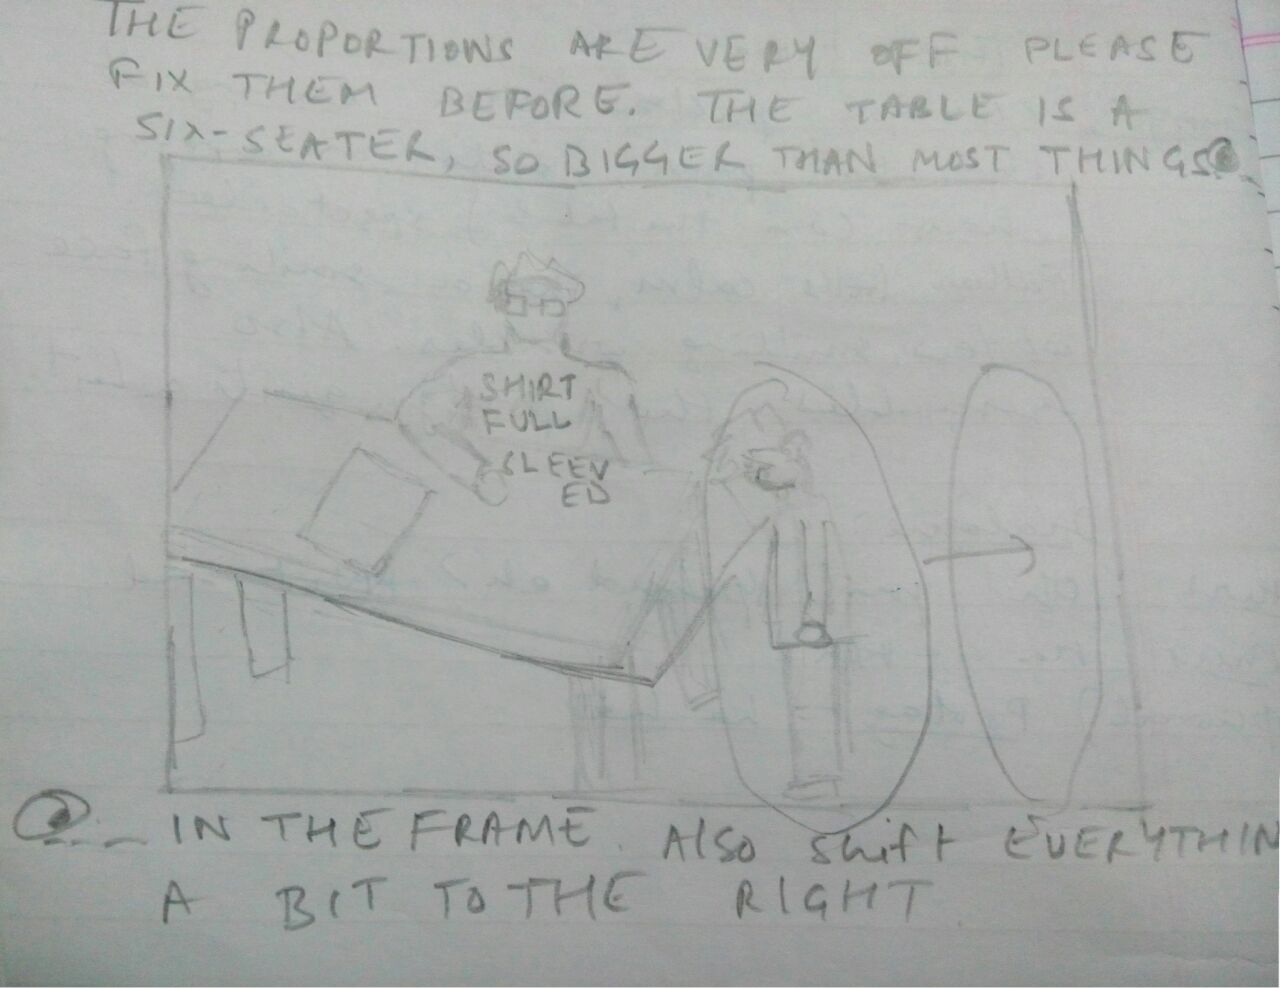 THE PROPORTIONS ARE VERY OFF PLEASE
FIX THEM BEFORE. THE TABLE IS A
SIX-SEATER, SO BIGGER THAN MOST THINGS
SHIRT
FULL
SLEEV
ED
IN THE FRAME. Also shift EVERYTHIN
A BIT TO THE RIGHT